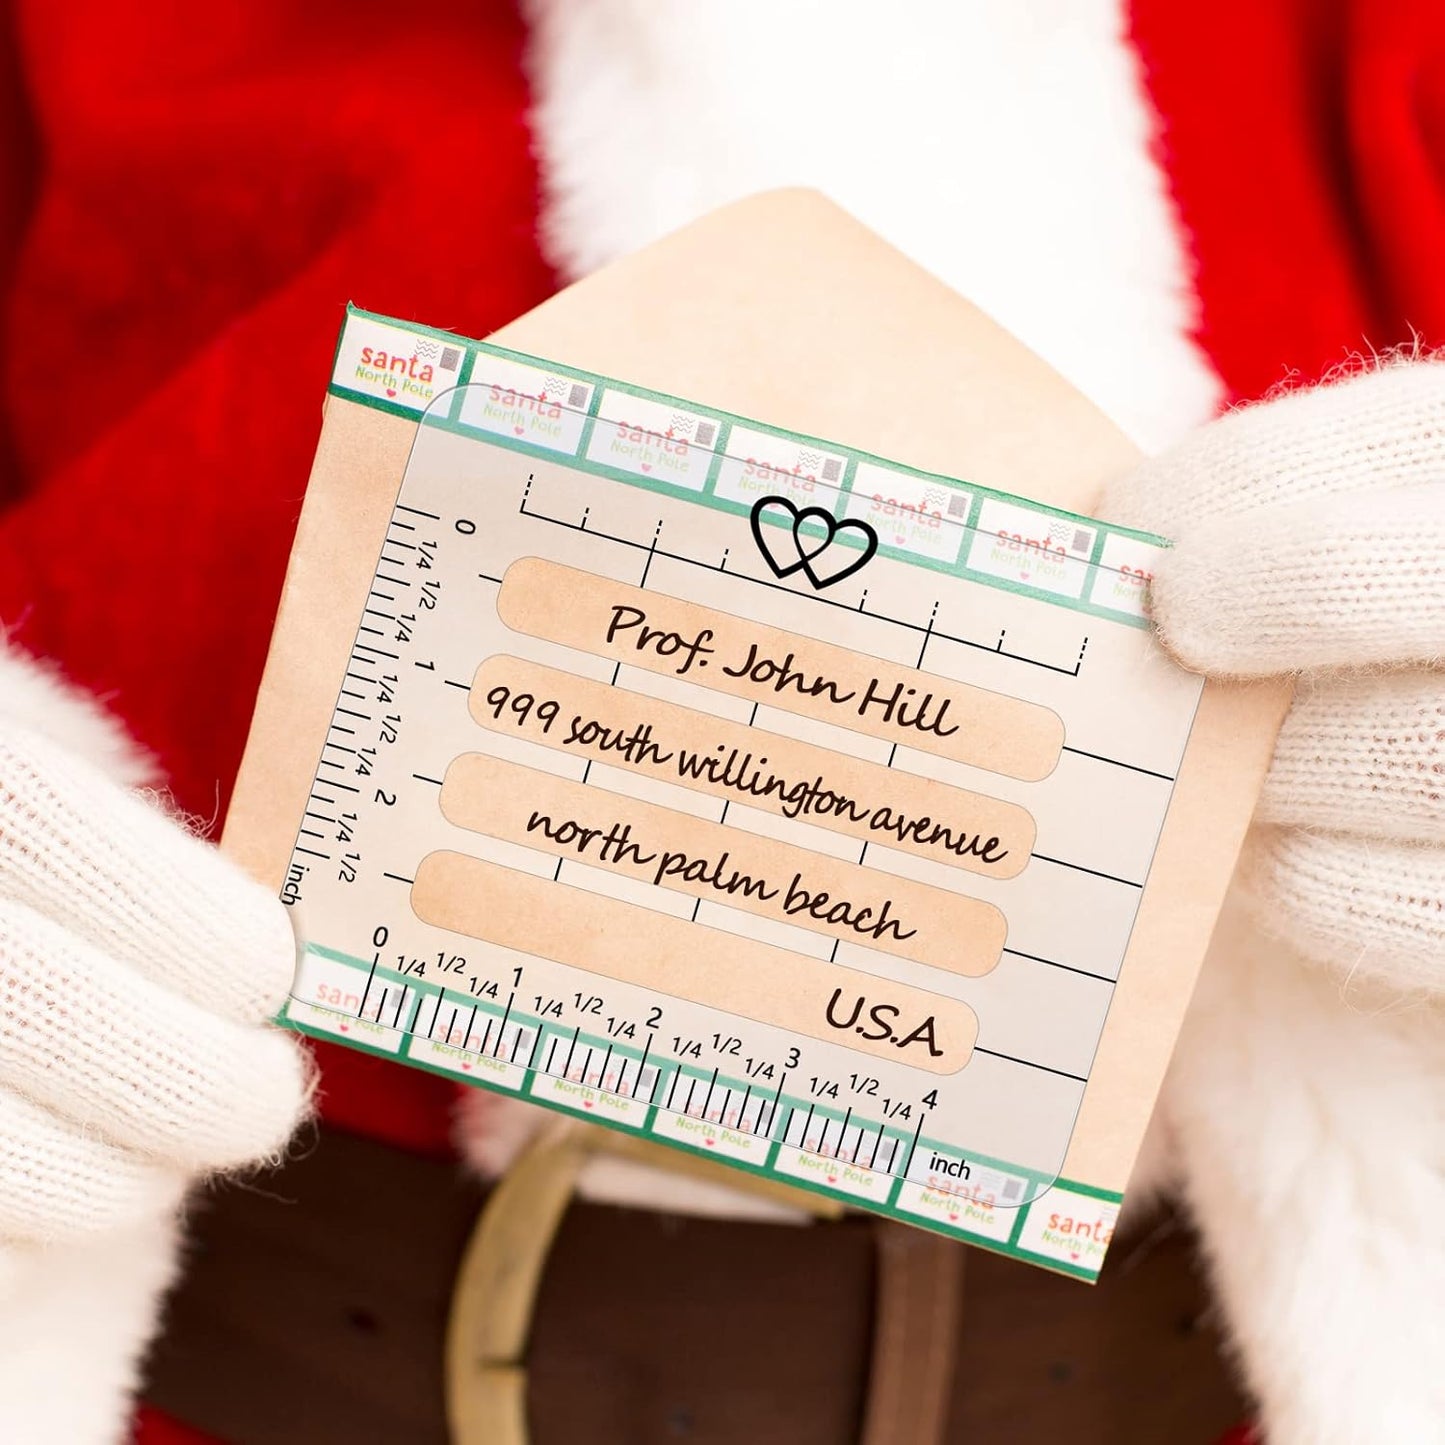 santa North Pole
santa North Pole
santa North Pole
santa North Pole
santa North Pole
santa North Pole
0 1/4 1/2 1/4 1 1/4 1/2 1/4 2 1/4 1/2 inch
Prof. John Hill
999 south willington avenue
north palm beach
U.S.A.
0 1/4 1/2 1/4 1 1/4 1/2 1/4 2 1/4 1/2 1/4 3 1/4 1/2 1/4 4 inch
santa North Pole
santa North Pole
santa North Pole
santa North Pole
santa North Pole
santa North Pole
santa North Pole